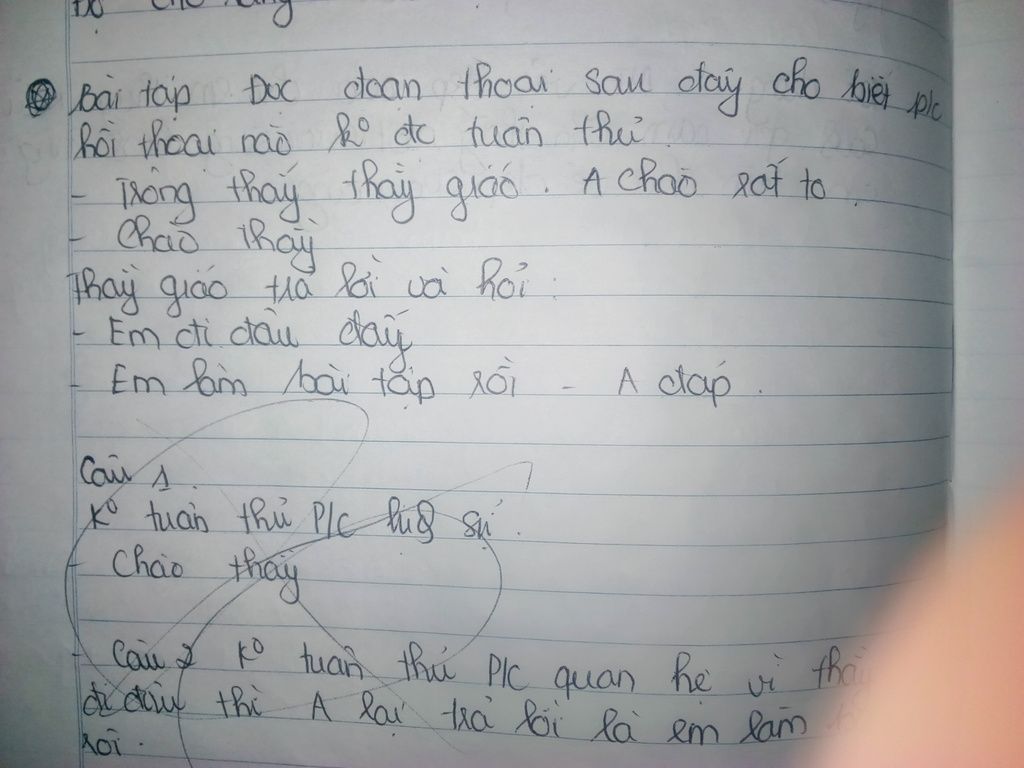 cho rằng
Bài tập Đọc đoạn thoại sau đây cho biết p/c
hội thoại nào k° đc tuân thủ.
- Trông thấy thầy giáo. A chào rất to.
- Chào thầy
Thầy giáo trả lời và hỏi:
- Em đi đâu đấy
- Em làm bài tập rồi - A đáp.
Câu 1.
K° tuân thủ P/C lịch sự.
- Chào thầy
- Câu 2 K° tuân thủ P/C quan hệ vì
đi đâu thì A lại trả lời là em làm
rồi.